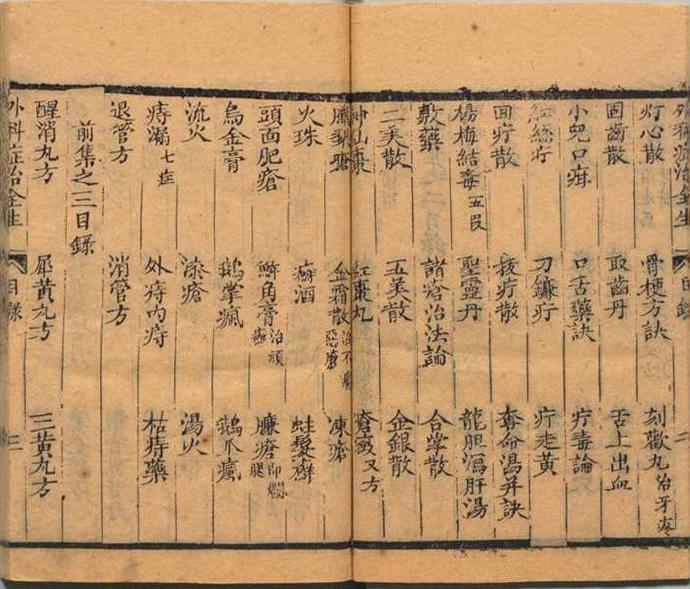 外科症治全生 目錄 二
灯心散 骨梗方訣 刻歡丸治牙疼
固齒散 取齒丹 舌上出血
小兒口疳 口舌藥訣 疔毒論
紅絲疔 刀鐮疔 疔走黃
面疔散 拔疔散 奪命湯并訣
楊梅結毒五叚 聖靈丹 龍胆瀉肝湯
敷藥 諸瘡治法論 合掌散
二美散 五美散 金銀散
神仙棗 紅棗丸 瘡藥又方
臁瘡 金霜散治不瘡惡瘡 凍瘡
火珠 癬酒 蛀髮癬
頭面肥瘡 觧角膏治頑瘡 臁瘡即爛腿
烏金膏 鵝掌瘋 鵝爪瘋
流火 漆瘡 湯火
痔漏七症 外痔内痔 枯痔藥
退管方 消管方
前集之三目錄
醒消丸方 犀黃丸方 三黃丸方
外科症治全生 目錄 三